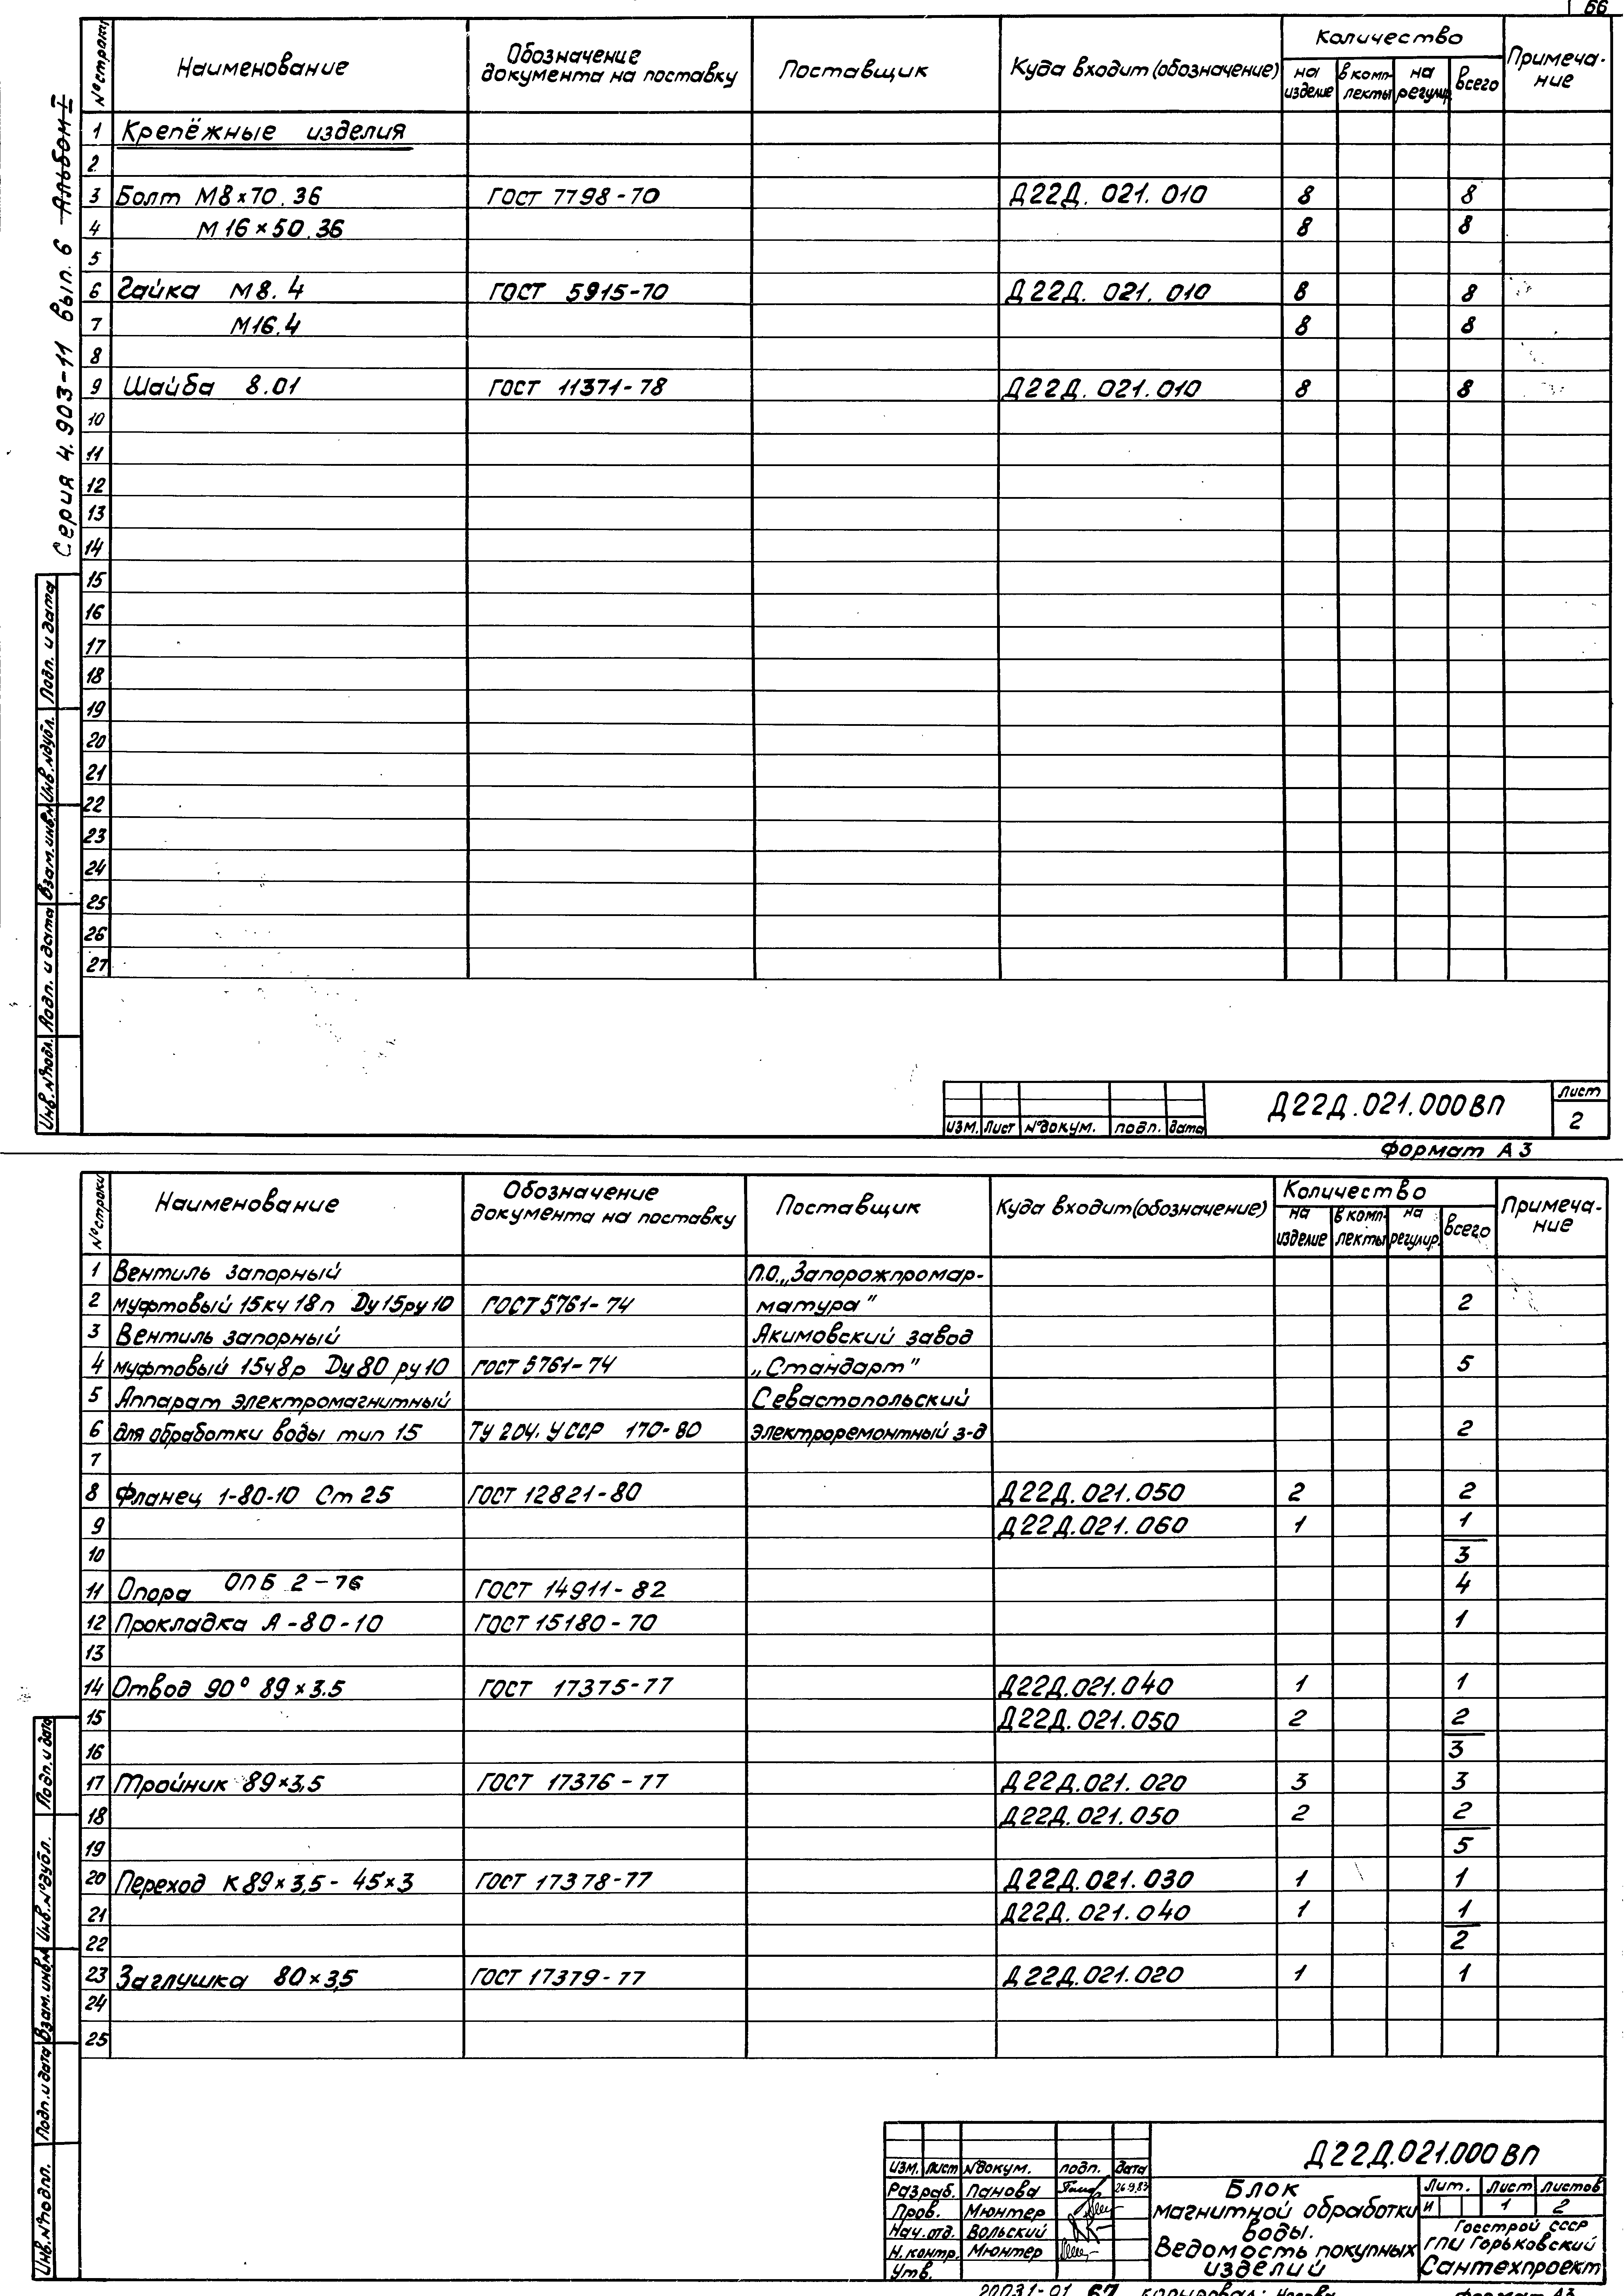 66
Серия 4.903-11 Вып. 6 Альбом I
№ строки Наименование Обозначение документа на поставку Поставщик Куда входит (обозначение) Количество на изделие в комплекты на регулир. всего Примечание
1 Крепёжные изделия
2
3 Болт М8×70.36 ГОСТ 7798-70 Д22Д.021.010 8 8
4 М16×50.36 8 8
5
6 Гайка М8.4 ГОСТ 5915-70 Д22Д.021.010 8 8
7 М16.4 8 8
8
9 Шайба 8.01 ГОСТ 11371-78 Д22Д.021.010 8 8
10
11
12
13
14
15
16
17
18
19
20
21
22
23
24
25
26
27
Инв.№ подл. Подп. и дата Взам.инв.№ Инв.№дубл. Подп. и дата
Изм. Лист №докум. подп. дата
Д22Д.021.000ВП
Лист
2
Формат А3
№ строки Наименование Обозначение документа на поставку Поставщик Куда входит (обозначение) Количество на изделие в комплекты на регулир. всего Примечание
1 Вентиль запорный П.О. „Запорожпромар-
2 муфтовый 15кч 18п Ду15 ру10 ГОСТ 5761-74 матура" 2
3 Вентиль запорный Якимовский завод
4 муфтовый 15ч8р Ду80 ру10 ГОСТ 5761-74 „Стандарт" 5
5 Аппарат электромагнитный Севастопольский
6 для обработки воды тип 15 ТУ 204. УССР 170-80 электроремонтный з-д 2
7
8 Фланец 1-80-10 Ст 25 ГОСТ 12821-80 Д22Д.021.050 2 2
9 Д22Д.021.060 1 1
10 3
11 Опора ОПБ 2-76 ГОСТ 14911-82 4
12 Прокладка А-80-10 ГОСТ 15180-70 1
13
14 Отвод 90° 89×3.5 ГОСТ 17375-77 Д22Д.021.040 1 1
15 Д22Д.021.050 2 2
16 3
17 Тройник 89×3,5 ГОСТ 17376-77 Д22Д.021.020 3 3
18 Д22Д.021.050 2 2
19 5
20 Переход К89×3,5-45×3 ГОСТ 17378-77 Д22Д.021.030 1 1
21 Д22Д.021.040 1 1
22 2
23 Заглушка 80×3,5 ГОСТ 17379-77 Д22Д.021.020 1 1
24
25
Инв.№подл. Подп. и дата Взам.инв.№ Инв.№дубл. Подп. и дата
Изм. Лист №докум. подп. дата
Разраб. Панова 26.9.83
Пров. Мюнтер
Нач.отд. Вольский
Н.контр. Мюнтер
Утв.
Д22Д.021.000ВП
Блок
магнитной обработки
воды.
Ведомость покупных
изделий
Лит. Лист Листов
И 1 2
Госстрой СССР
ГПИ Горьковский
Сантехпроект
20031-01 67 Копировал: Формат А3